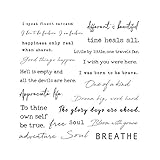 I speak fluent sarcasm
different & beautiful
I don't like to be forever
time heals all.
happiness only real
when shared.
Lovely little one, we travels far,
I wish you were here.
Good things happen
Hell is empty and
all the devils is here.
I was born to be brave.
One of a kind
Appreciate life.
Dream big, work hard
To thine
own self
be true.
The glory days are ahead.
free
Soul
Bloom with grace
adventure
Soul
BREATHE